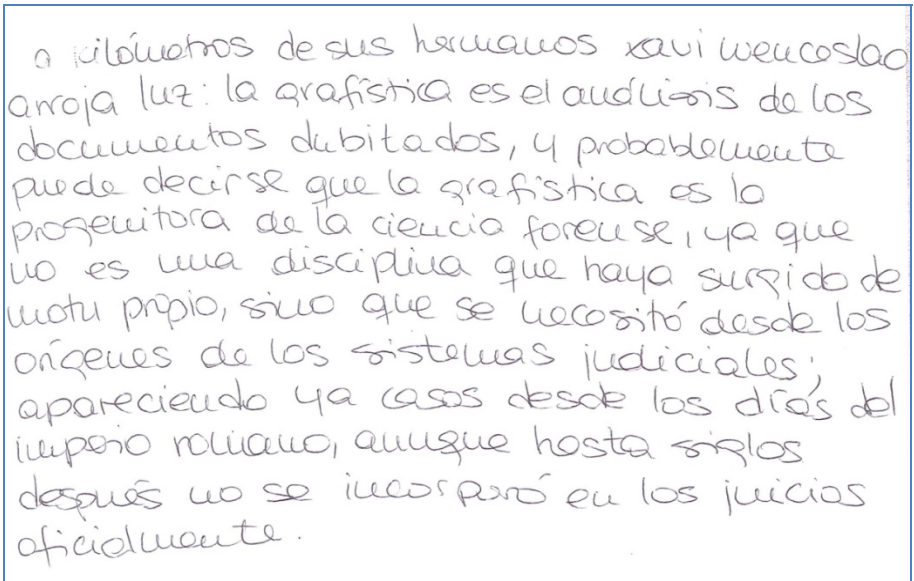 a kilómetros de sus hermanos xavi wencoslao
arroja luz: la grafística es el análisis de los
documentos dubitados, y probablemente
puede decirse que la grafística es la
progenitora de la ciencia forense, ya que
no es una disciplina que haya surgido de
motu propio, sino que se necesitó desde los
orígenes de los sistemas judiciales;
apareciendo ya casos desde los días del
imperio romano, aunque hasta siglos
después no se incorporó en los juicios
oficialmente.